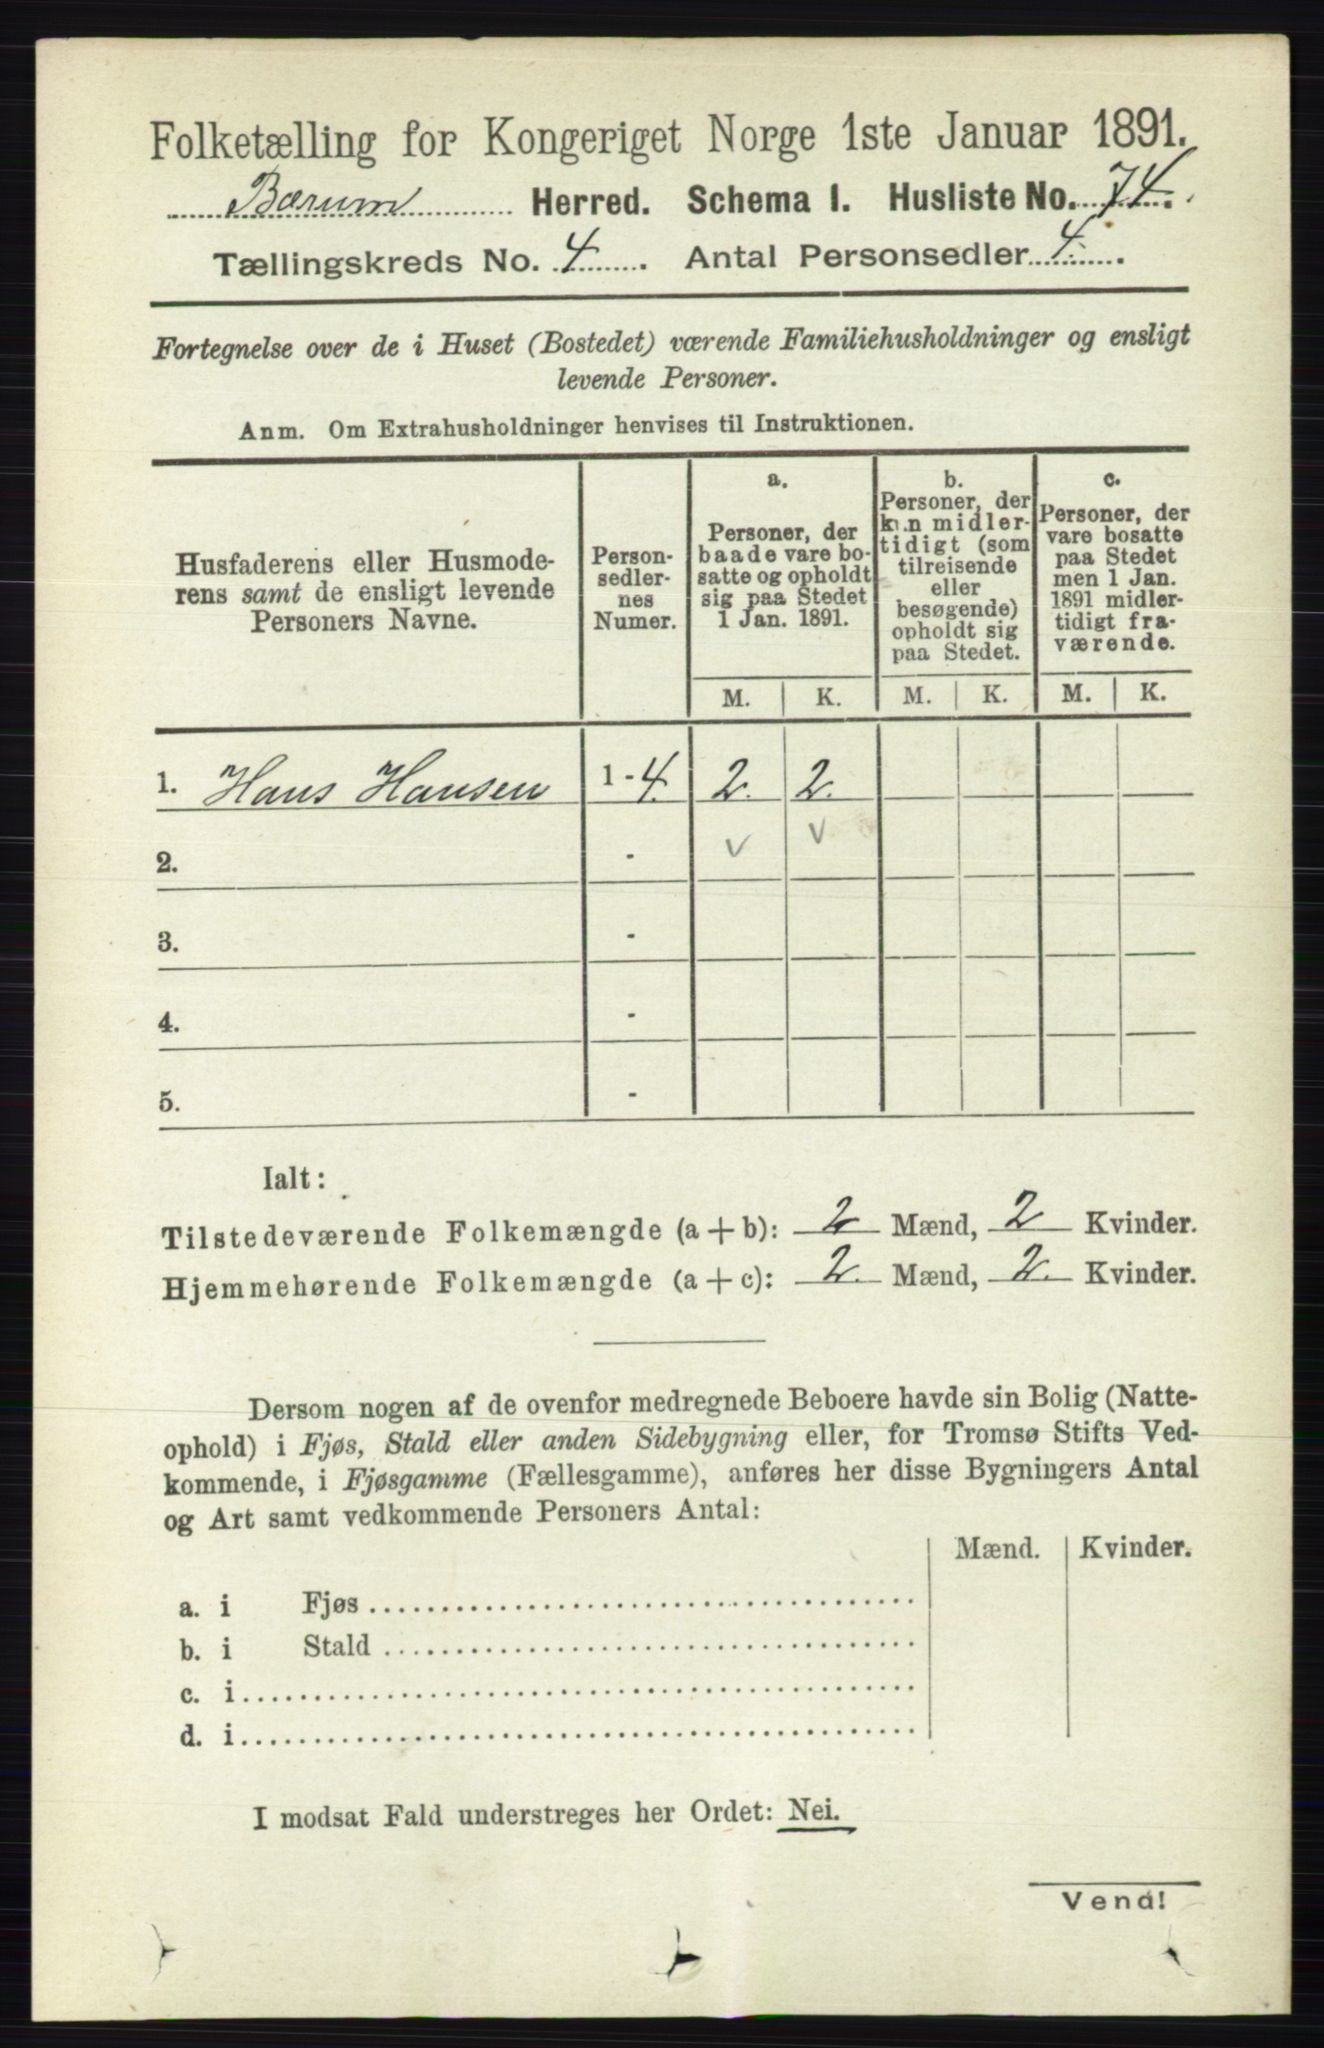 Folketælling for Kongeriget Norge 1ste Januar 1891.
Bærum Herred. Schema I. Husliste No. 74.
Tællingskreds No. 4. Antal Personsedler 4.
Fortegnelse over de i Huset (Bostedet) værende Familiehusholdninger og ensligt
levende Personer.
Anm. Om Extrahusholdninger henvises til Instruktionen.
Husfaderens eller Husmode-
rens samt de ensligt levende
Personers Navne.
Person-
sedler-
nes
Numer.
a.
Personer, der
baade vare bo-
satte og opholdt
sig paa Stedet
1 Jan. 1891.
b.
Personer, der
kun midler-
tidigt (som
tilreisende
eller
besøgende)
opholdt sig
paa Stedet.
c.
Personer, der
vare bosatte
paa Stedet
men 1 Jan.
1891 midler-
tidigt fra-
værende.
M. K. M. K. M. K.
1. Hans Hansen 1 - 4. 2. 2.
2. - v v
3. -
4. -
5. -
Ialt:
Tilstedeværende Folkemængde (a + b): 2 Mænd, 2 Kvinder.
Hjemmehørende Folkemængde (a + c): 2. Mænd, 2. Kvinder.
Dersom nogen af de ovenfor medregnede Beboere havde sin Bolig (Natte-
ophold) i Fjøs, Stald eller anden Sidebygning eller, for Tromsø Stifts Ved-
kommende, i Fjøsgamme (Fællesgamme), anføres her disse Bygningers Antal
og Art samt vedkommende Personers Antal:
Mænd. Kvinder.
a. i Fjøs
b. i Stald
c. i
d. i
I modsat Fald understreges her Ordet: Nei.
Vend!